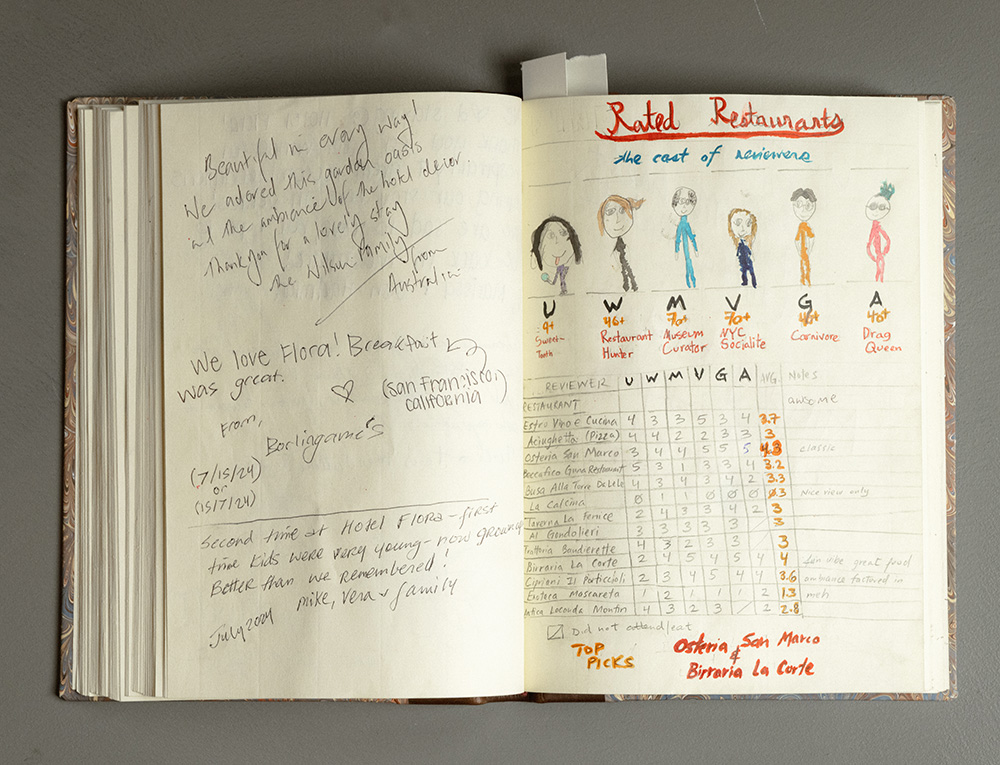 Beautiful in every way!
We adored this garden oasis
and the ambiance of the hotel decor
Thankyou for a lovely stay
the Wilson Family
from
Australia
We love Flora! Breakfast
was great.
(San Francisco,
california)
From,
Borlingame's
(7/15/24)
or
(15/7/24)
Second time at Hotel FLORA - first
time kids were very young - now grownup
Better than we remembered!
Mike, Vera + family
July 2024
Rated Restaurants
the cast of reviewers
U W M V G A
9+ 46+ 70+ 70+ 40+ 40+
Sweet-Tooth Restaurant Hunter Museum Curator NYC Socialite Carnivore Drag Queen
REVIEWER U W M V G A AVG. Notes
RESTAURANT awsome
Estro Vino e Cucina 4 3 3 5 3 4 3.7
Aciughetta (Pizza) 4 4 2 2 3 3 3
Osteria San Marco 3 4 4 5 5 5 4.3 classic
Beccafico Restaurant 5 3 1 3 3 4 3.2
Busa Alla Torre DeLele 4 3 4 3 4 2 3.3
La Calcina 0 1 1 0 0 0 0.3 Nice view only
Taverna La Fenice 2 4 3 3 4 2 3
Al Gondolieri 3 3 3 3 3 3
Trattoria Bandierette 4 3 2 3 3 3
Birraria La Corte 2 4 5 4 5 4 4 fun vibe great food
Cipriani Il Porticciolo 2 3 4 5 4 4 3.6 ambiance factored in
Enoteca Mascareta 1 2 1 1 1 2 1.3 meh
Antica Locanda Montin 4 3 2 3 2 2.8
Did not attend/eat
TOP
PICKS
Osteria San Marco
&
Birraria La Corte